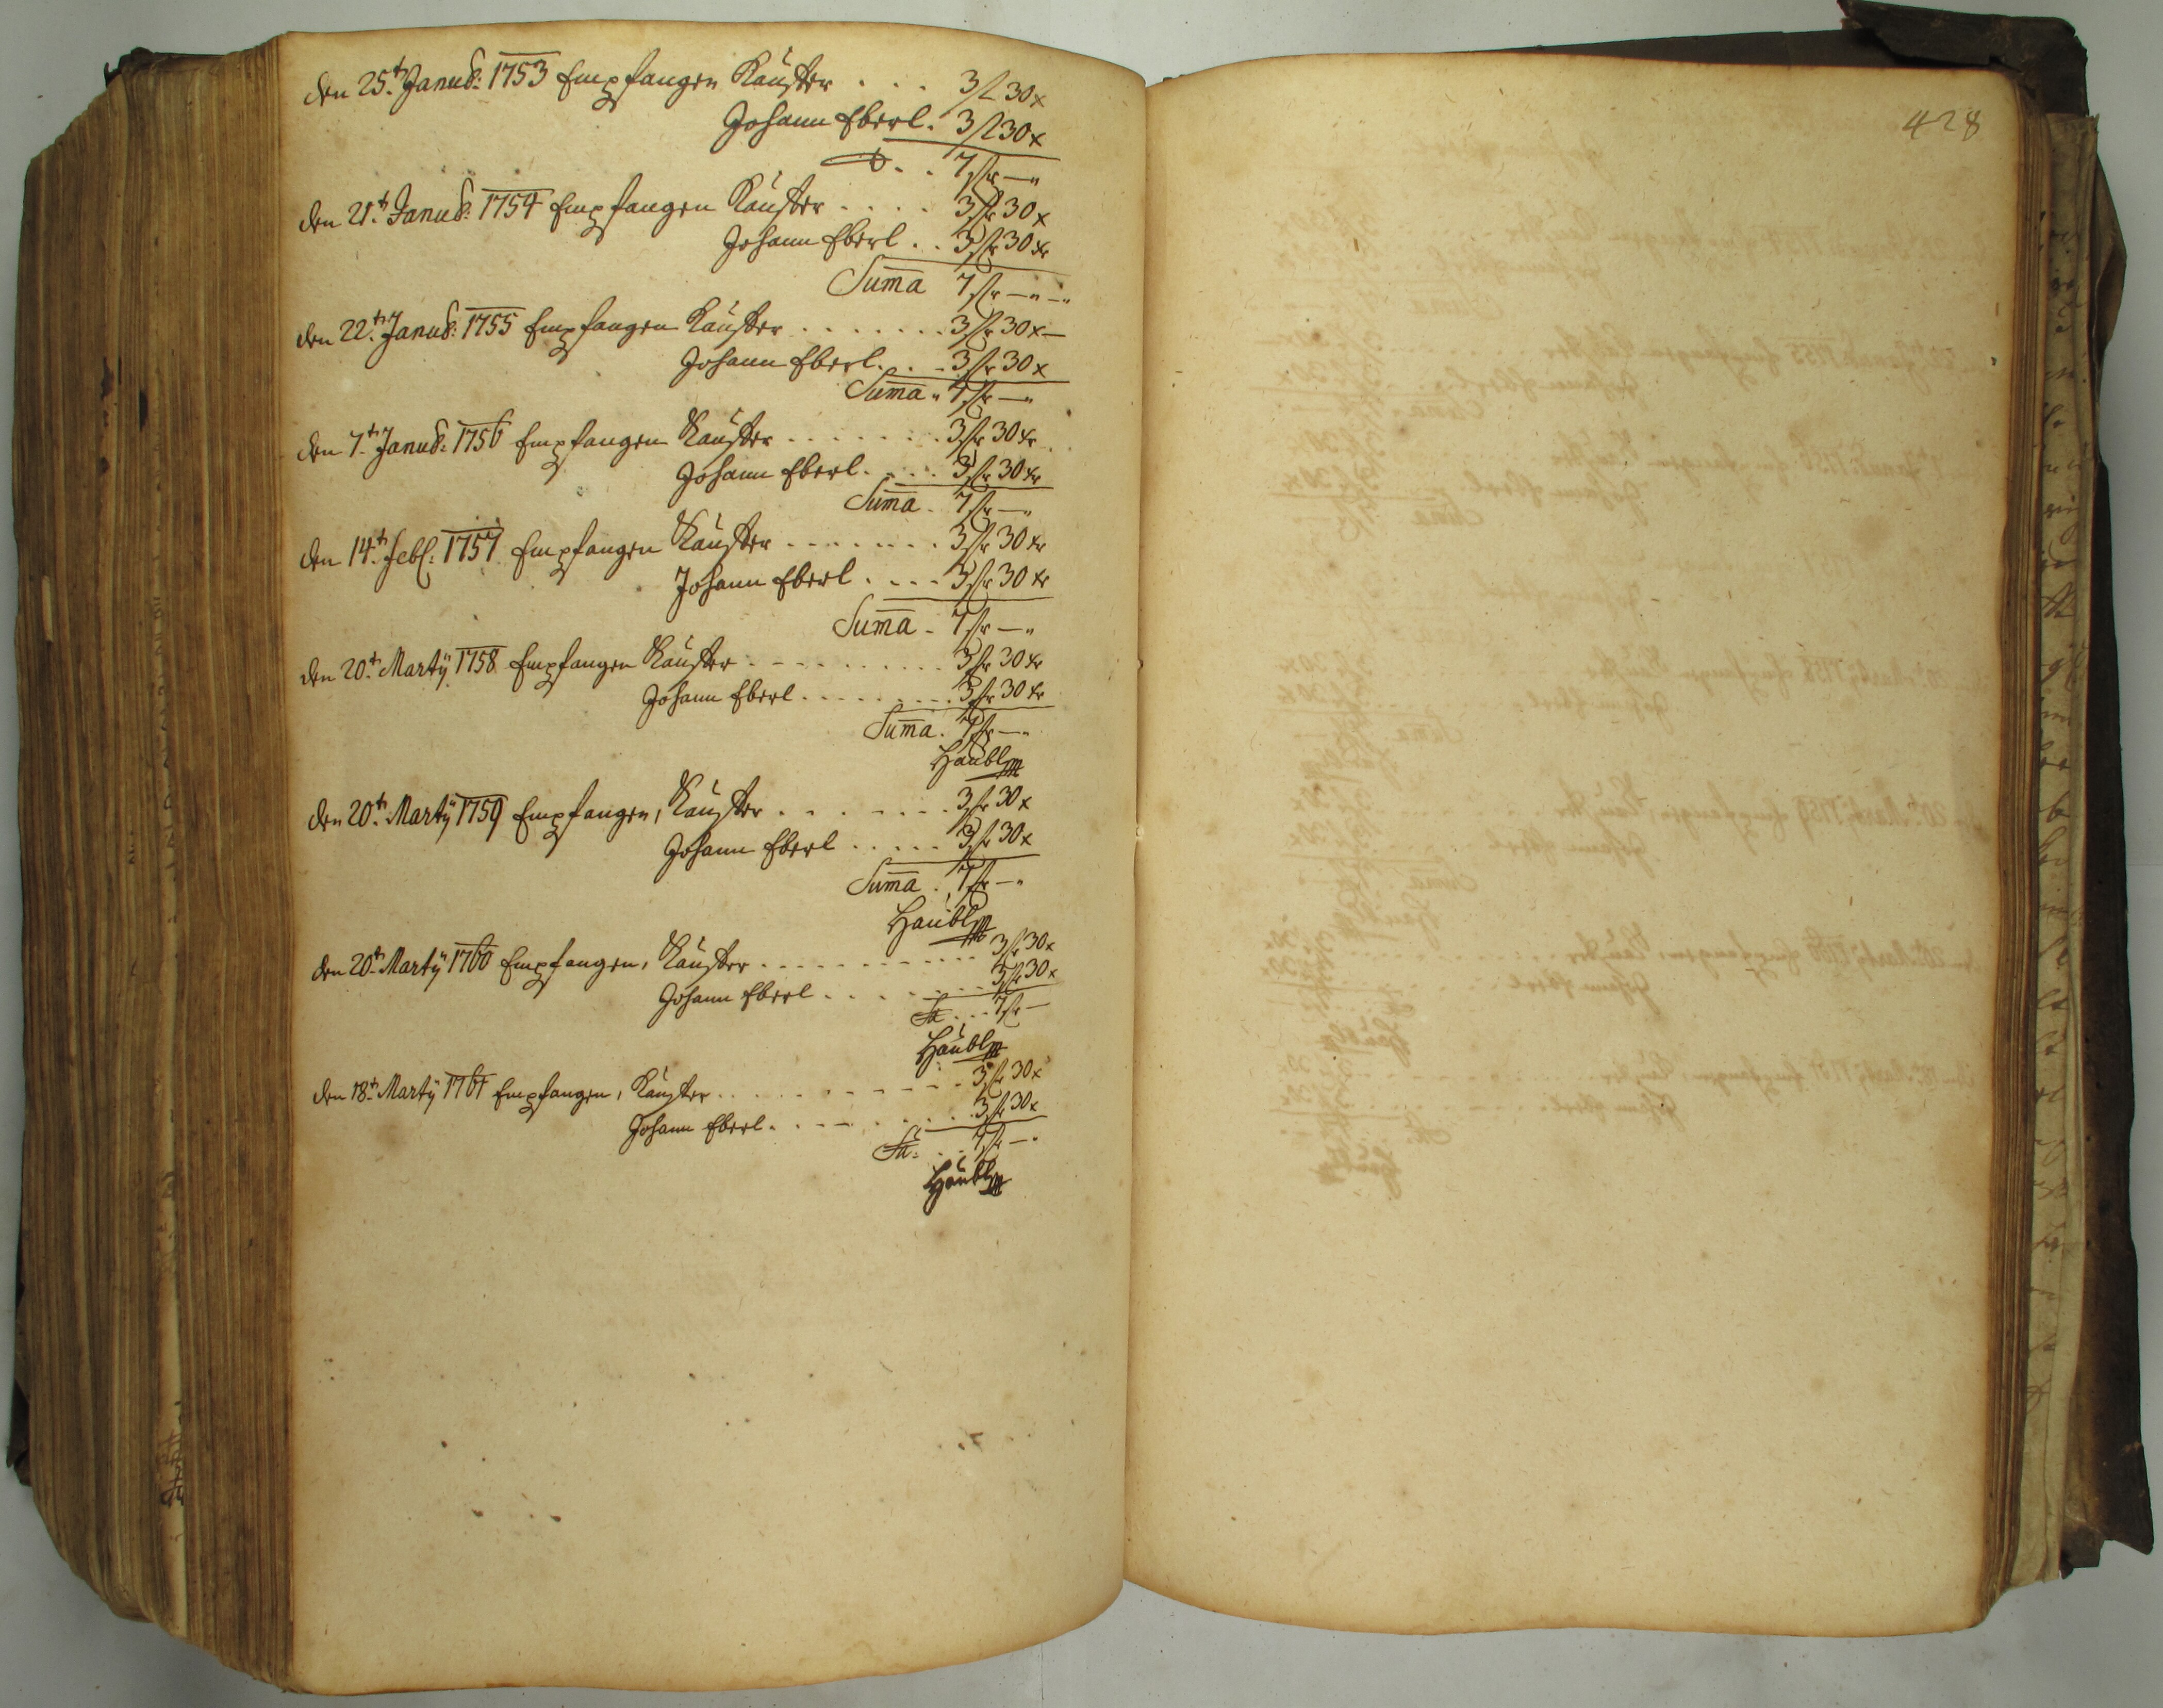 den 25t. Januar: 1753 Empfangen Käuffer . . . 3 fl 30 x
Johann Eberl . 3 fl 30 x
. . 7 fl —"
den 21t. Januar: 1754 Empfangen Käuffer . . . . 3 fl 30 x
Johann Eberl . . 3 fl 30 xr
Suma 7 fl —" —"
den 22t. Januar: 1755 Empfangen Käuffer . . . . . . . 3 fl 30 x —
Johann Eberl . . . 3 fl 30 x
Suma " 7 fl —"
den 7t. Januar: 1756 Empfangen Käuffer . . . . . . . 3 fl 30 xr
Johann Eberl . . . . 3 fl 30 xr
Suma . 7 fl —"
den 14t. Febr: 1757 Empfangen Käuffer . . . . . . . 3 fl 30 xr
Johann Eberl . . . . 3 fl 30 xr
Suma . 7 fl —"
den 20t. Martÿ 1758 Empfangen Käuffer . . . . . . . . . . 3 fl 30 xr
Johann Eberl . . . . . . . . 3 fl 30 xr
Suma . 7 fl —"
Häubl
den 20t. Martÿ 1759 Empfangen, Käuffer . . . . . . . 3 fl 30 x
Johann Eberl . . . . . 3 fl 30 x
Suma . 7 fl —"
Häubl
den 20t. Martÿ 1760 Empfangen, Käuffer . . . . . . . . . . . . 3 fl 30 x
Johann Eberl . . . . . . . . 3 fl 30 x
. . . 7 fl —
Häubl
den 18t. Martÿ 1761 Empfangen, Käuffer . . . . . . . . . . 3 fl 30 x
Johann Eberl . . . . . . . . . 3 fl 30 x
. . . 7 fl — .
Häubl
428